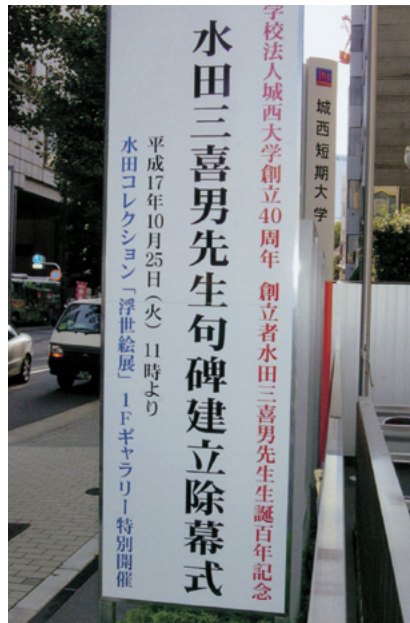 学校法人城西大学創立40周年 創立者水田三喜男先生生誕百年記念
水田三喜男先生句碑建立除幕式
平成17年10月25日（火）11時より
水田コレクション「浮世絵展」1Fギャラリー特別開催
城西短期大学